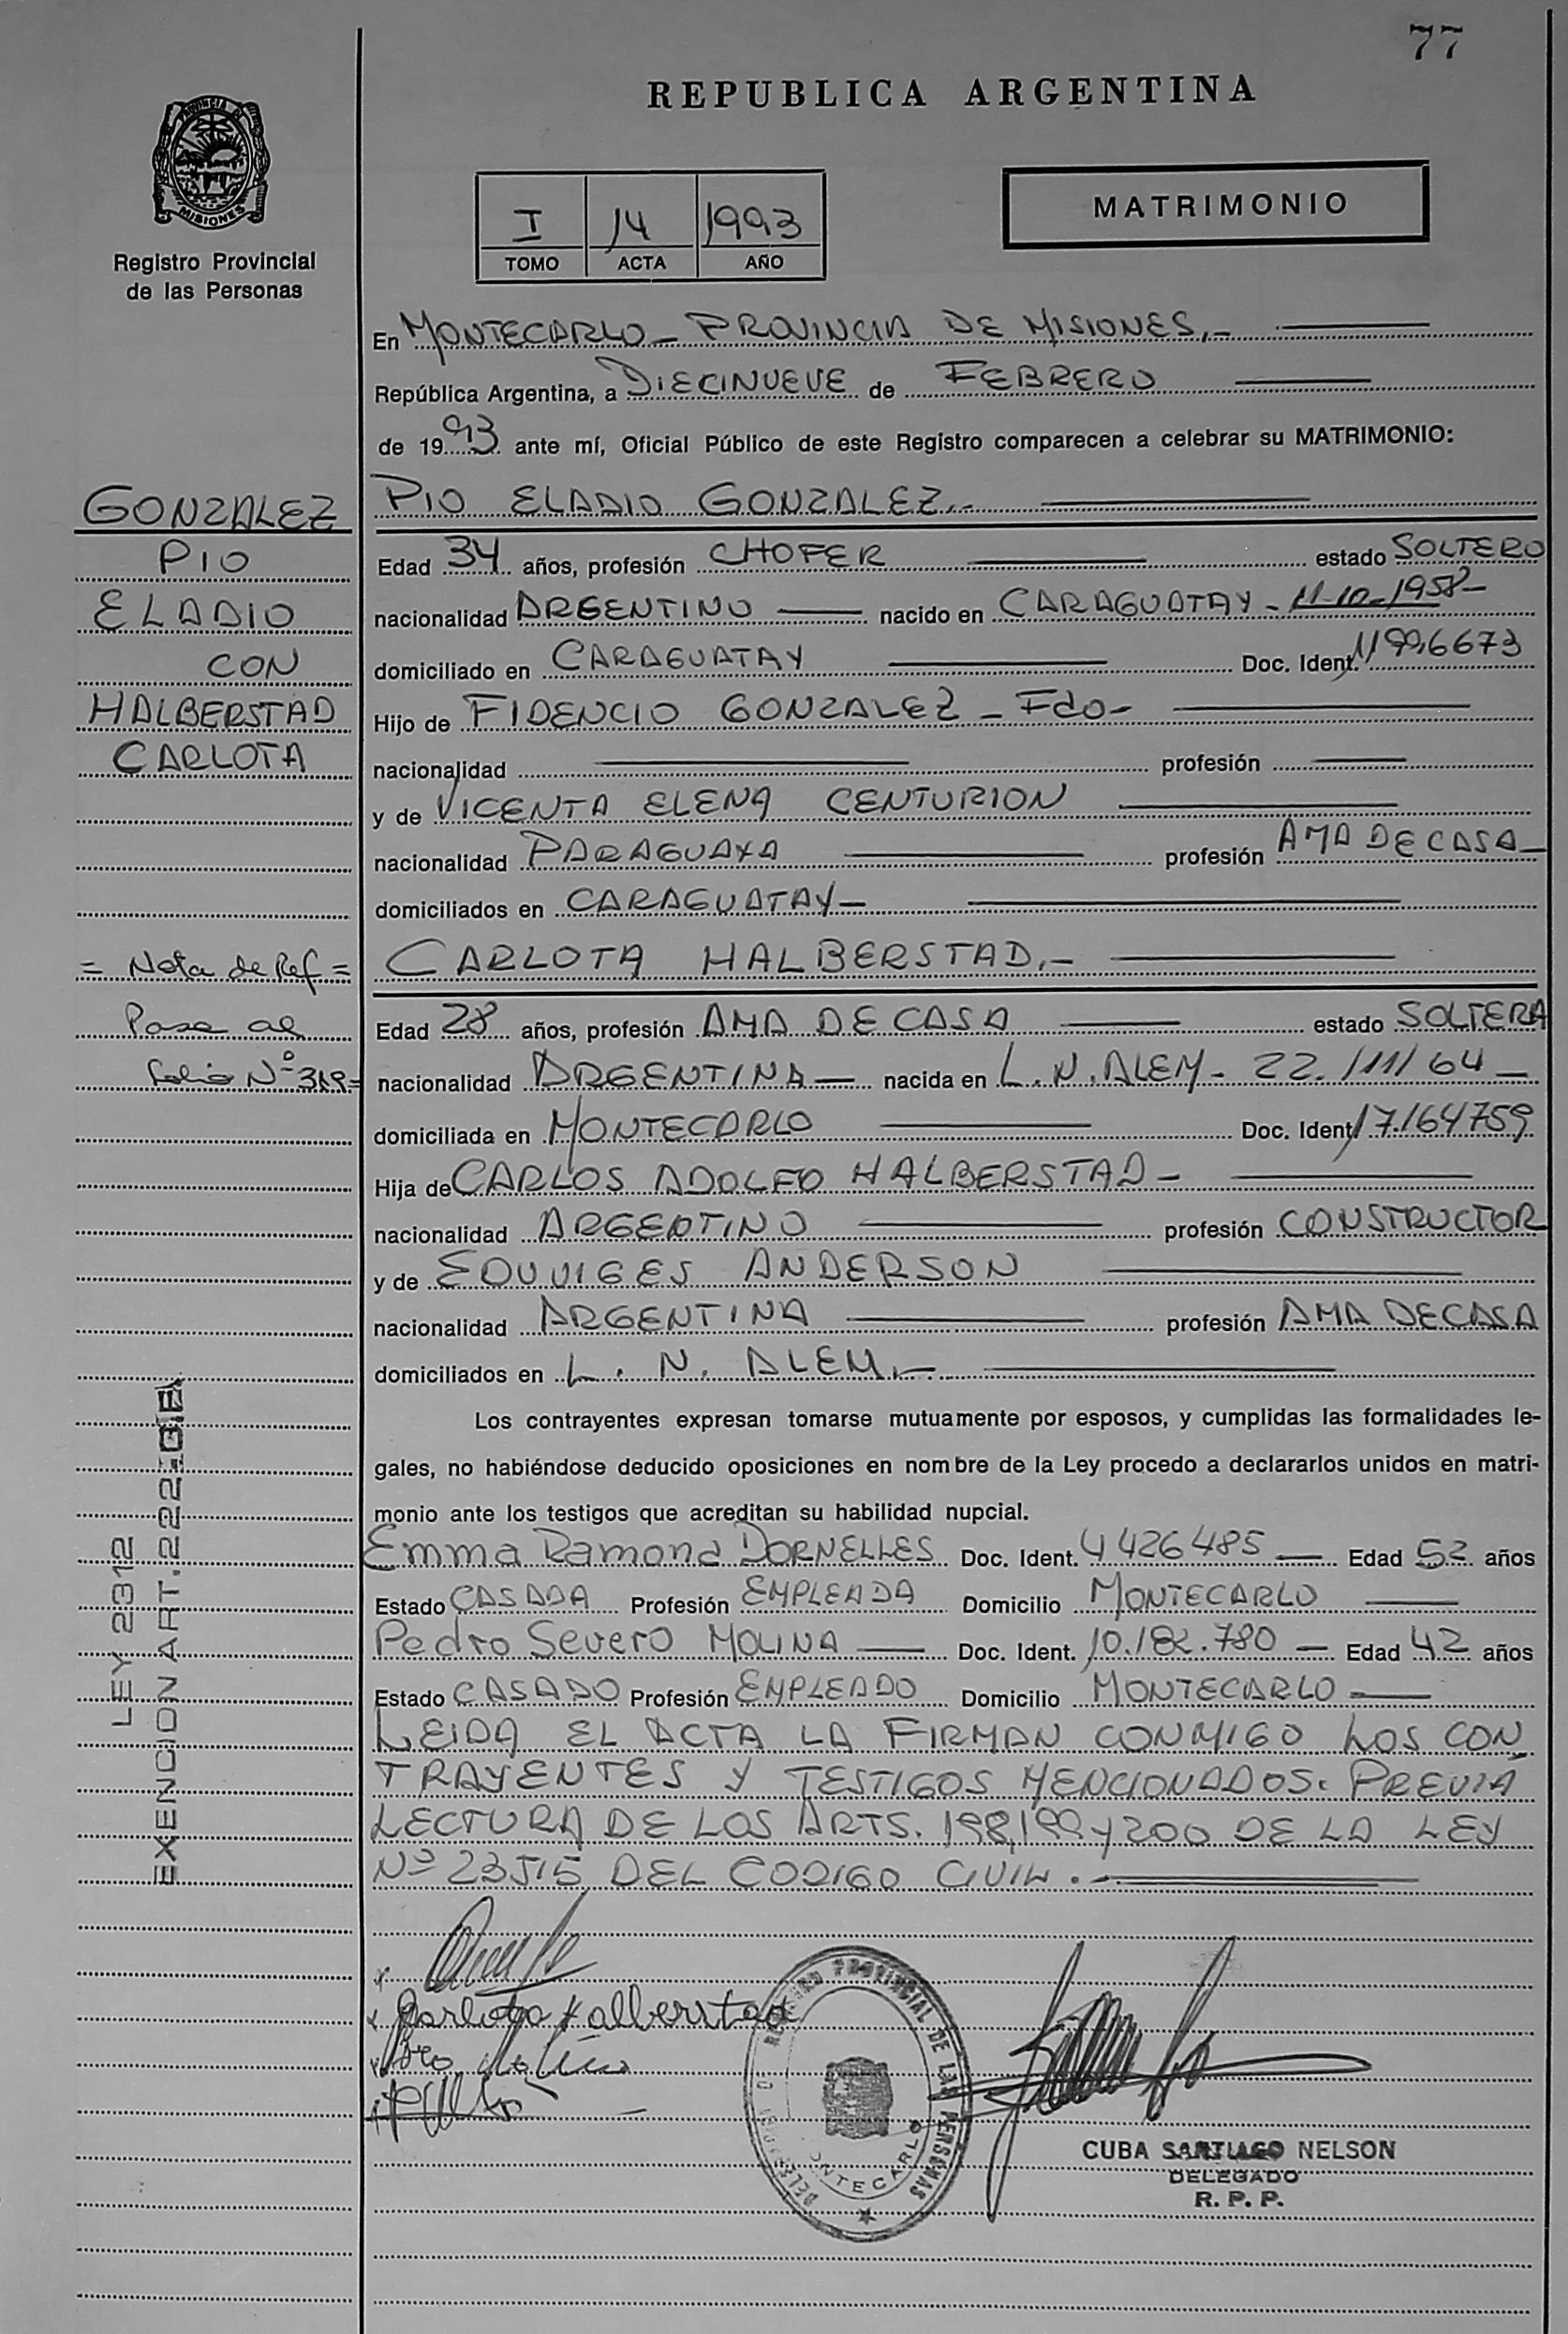 77
REPUBLICA ARGENTINA
PROVINCIA D
MISIONES
Registro Provincial
de las Personas
I 14 1993
TOMO ACTA AÑO
MATRIMONIO
En MONTECARLO - PROVINCIA DE MISIONES.-
República Argentina, a DIECINUEVE de FEBRERO
de 1993 ante mí, Oficial Público de este Registro comparecen a celebrar su MATRIMONIO:
GONZALEZ
PIO
ELADIO
CON
HALBERSTAD
CARLOTA
= Nota de Ref =
Pasa al
folio Nº
LEY 2312
EXENCION ART. 22
PIO ELADIO GONZALEZ.-
Edad 34 años, profesión CHOFER estado SOLTERO
nacionalidad ARGENTINO nacido en CARAGUATAY - 11-10-1958-
domiciliado en CARAGUATAY Doc. Ident.
Hijo de FIDENCIO GONZALEZ - Fdo-
nacionalidad profesión
y de VICENTA ELENA CENTURION
nacionalidad PARAGUAYA profesión AMA DE CASA-
domiciliados en CARAGUATAY-
CARLOTA HALBERSTAD.-
Edad 28 años, profesión AMA DE CASA estado SOLTERA
nacionalidad ARGENTINA- nacida en L.N. ALEM- 22./11/64-
domiciliada en MONTECARLO Doc. Ident. 17.164759
Hija de CARLOS ADOLFO HALBERSTAD-
nacionalidad ARGENTINO profesión CONSTRUCTOR
y de EDUVIGES ANDERSON
nacionalidad ARGENTINA profesión AMA DE CASA
domiciliados en L. N. ALEM.-
Los contrayentes expresan tomarse mutuamente por esposos, y cumplidas las formalidades le-
gales, no habiéndose deducido oposiciones en nombre de la Ley procedo a declararlos unidos en matri-
monio ante los testigos que acreditan su habilidad nupcial.
Emma Ramona DORNELLES Doc. Ident. 4426485 - Edad 52 años
Estado CASADA Profesión EMPLEADA Domicilio MONTECARLO
Pedro Severo MOLINA Doc. Ident. 10.182.780 - Edad 42 años
Estado CASADO Profesión EMPLEADO Domicilio MONTECARLO
LEIDA EL ACTA LA FIRMAN CONMIGO LOS CON
TRAYENTES Y TESTIGOS MENCIONADOS. PREVIA
LECTURA DE LOS ARTS. 198,199 y 200 DE LA LEY
Nº 23515 DEL CODIGO CIVIL.-
Carlota Halberstad
REGISTRO PROVINCIAL DE LAS PERSONAS
MONTECARLO
CUBA SANTIAGO NELSON
DELEGADO
R. P. P.